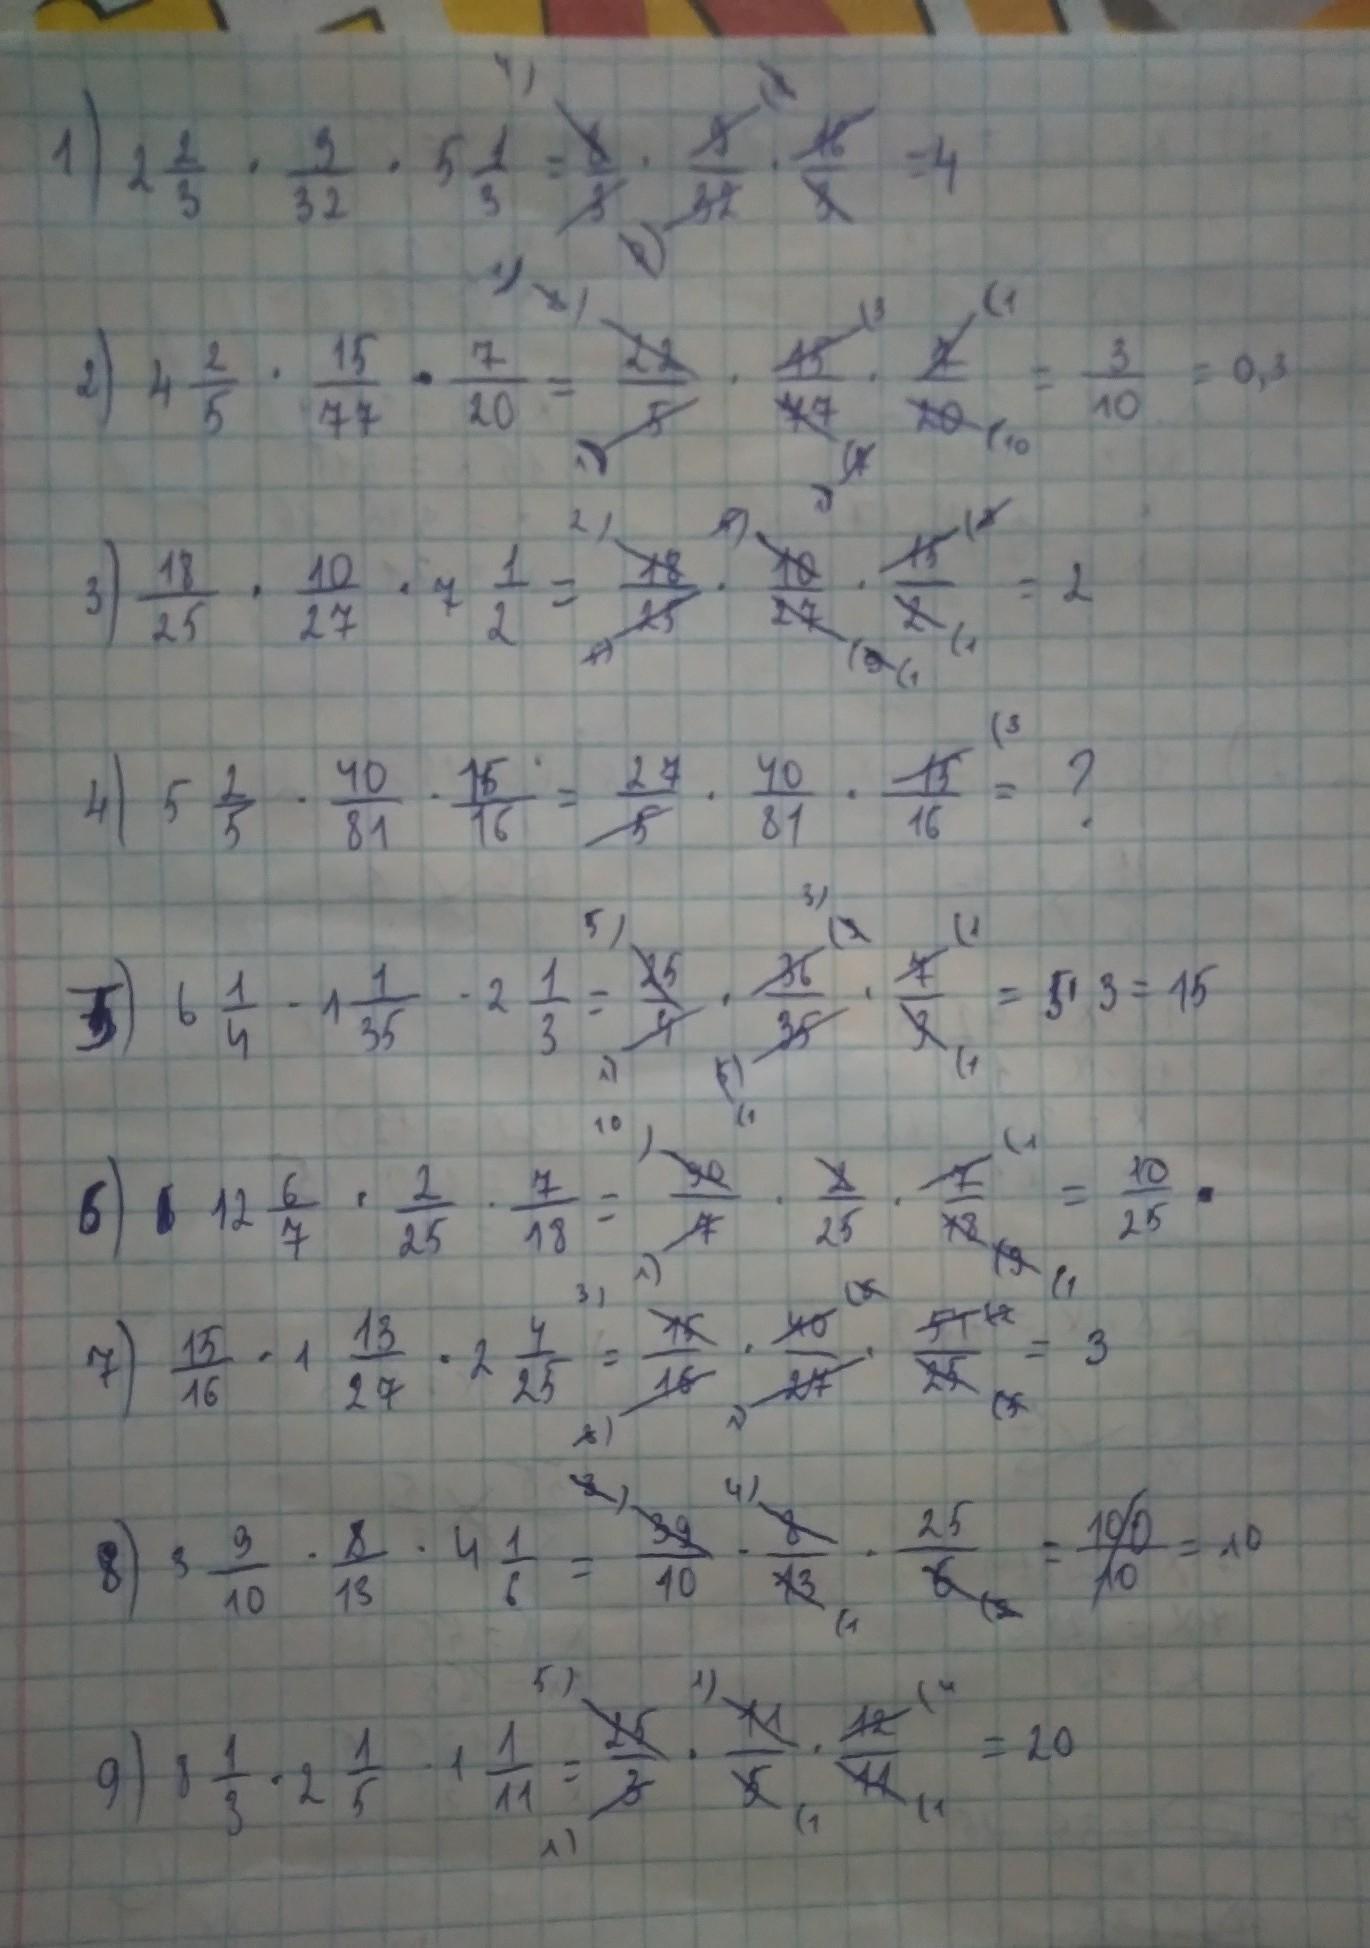 1) 2 2/3 · 9/32 · 5 1/3 = 8/3 · 9/32 · 16/3 = 4
2) 4 2/5 · 15/77 · 7/20 = 22/5 · 15/77 · 7/20 = 3/10 = 0,3
3) 18/25 · 10/27 · 7 1/2 = 18/25 · 10/27 · 15/2 = 2
4) 5 2/5 · 40/81 · 15/16 = 27/5 · 40/81 · 15/16 = ?
5) 6 1/4 · 1 1/35 · 2 1/3 = 25/4 · 36/35 · 7/3 = 5 · 3 = 15
6) 12 6/7 · 2/25 · 7/18 = 90/7 · 2/25 · 7/18 = 10/25
7) 15/16 · 1 13/27 · 2 4/25 = 15/16 · 40/27 · 54/25 = 3
8) 3 9/10 · 8/13 · 4 1/6 = 39/10 · 8/13 · 25/6 = 100/10 = 10
9) 8 1/3 · 2 1/5 · 1 1/11 = 25/3 · 11/5 · 12/11 = 20